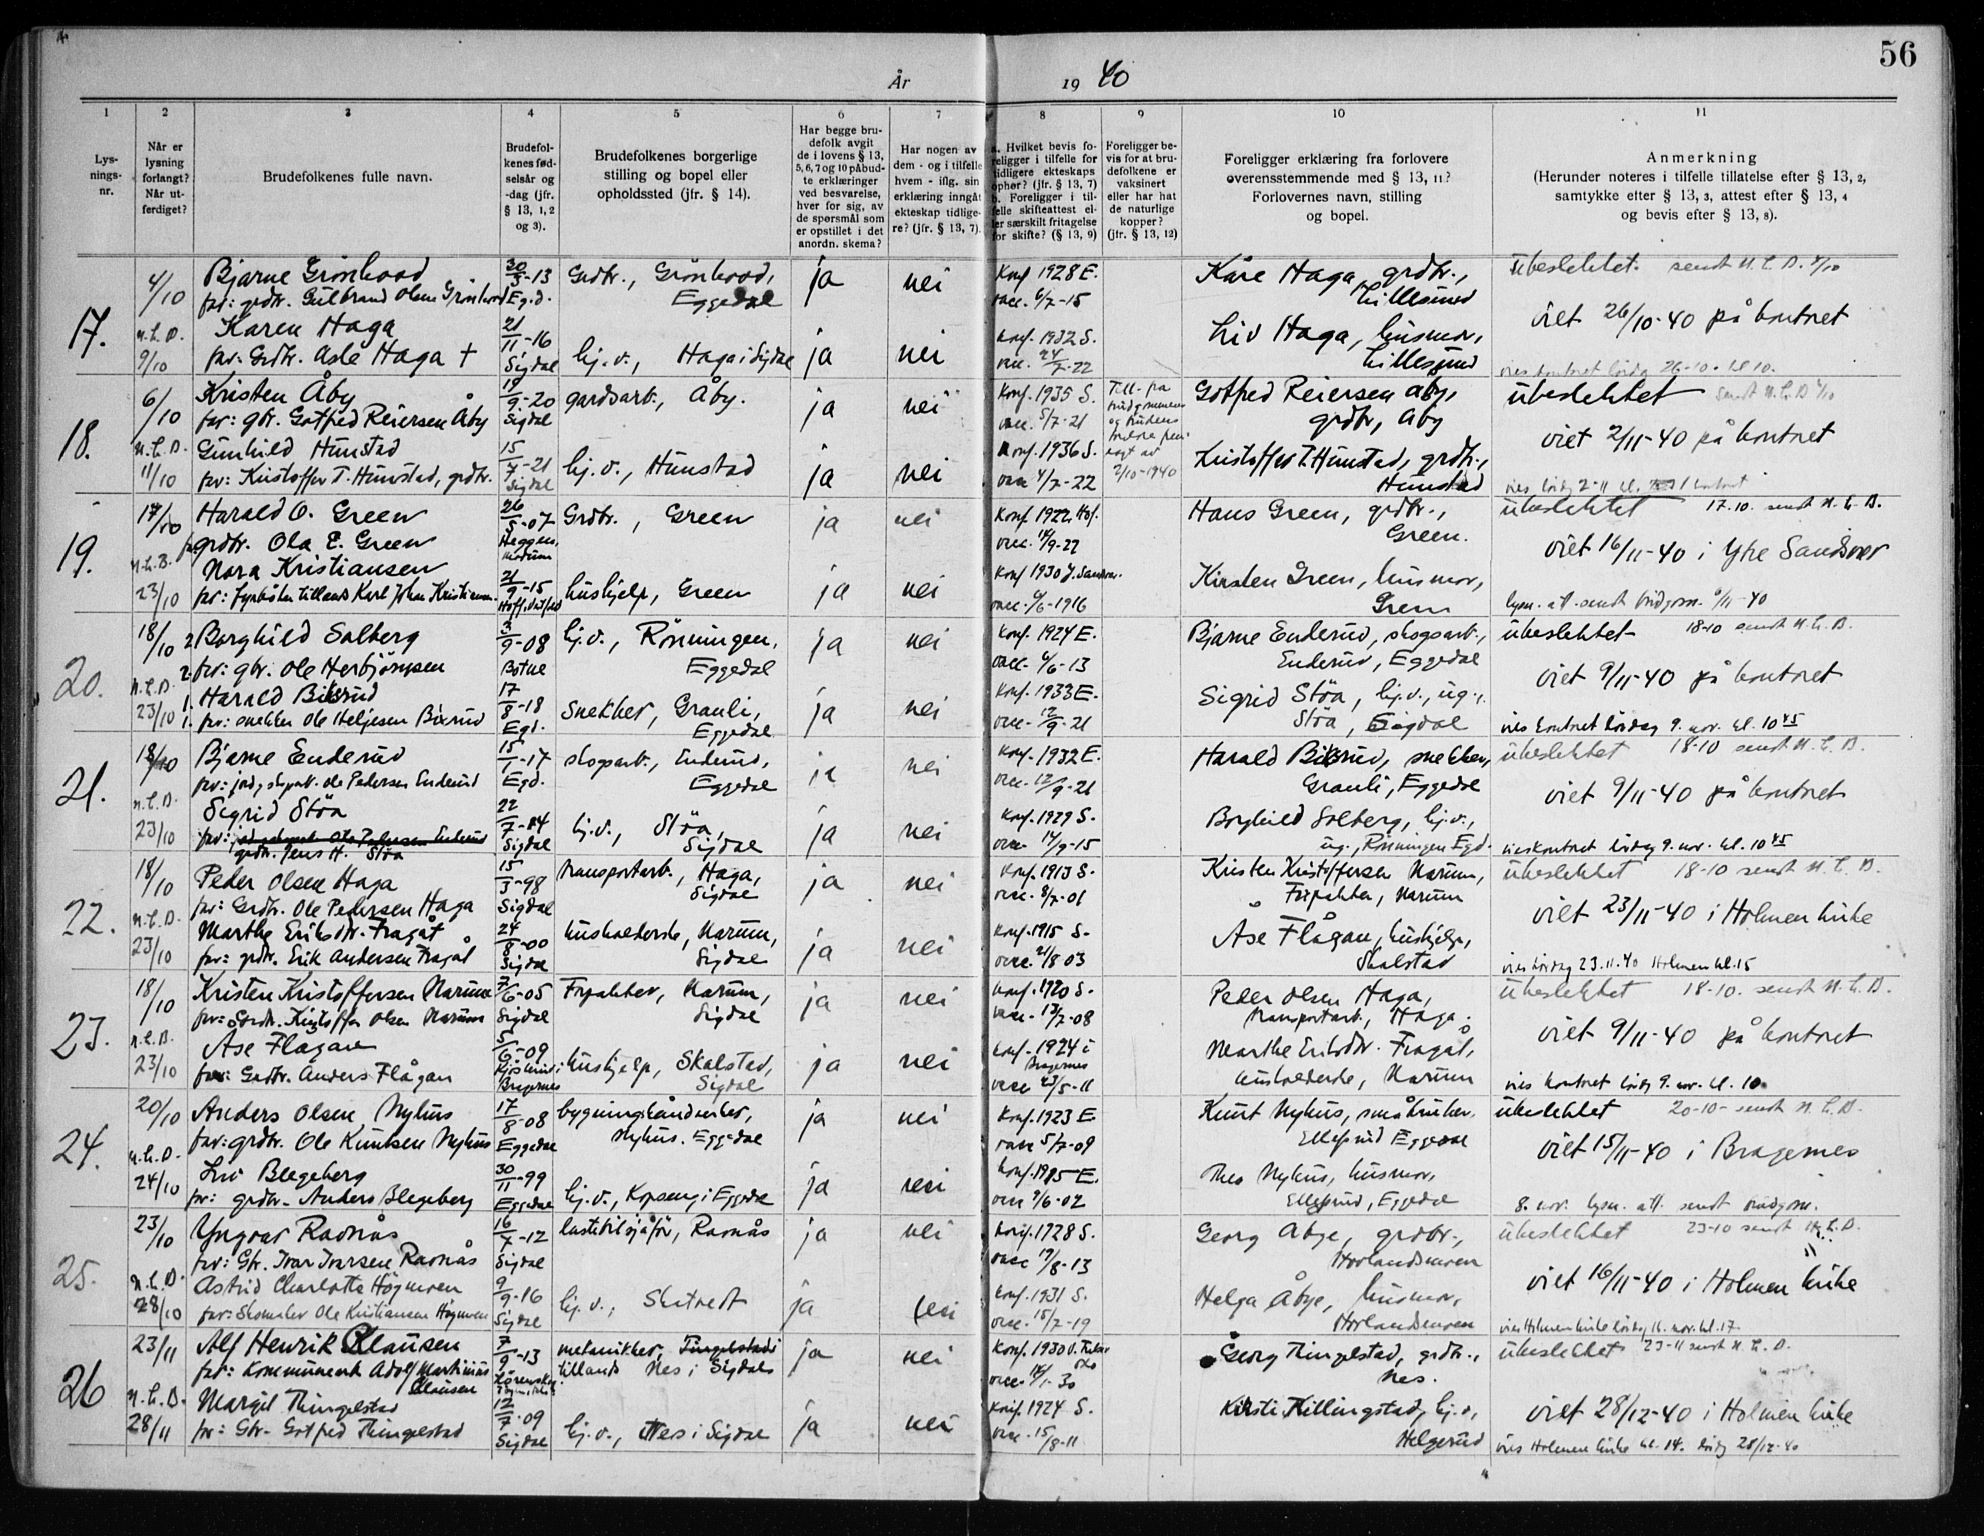 56
År 1940
1 2 3 4 5 6 7 8 9 10 11
Lys-
nings-
nr.
Når er
lysning
forlangt?
Når ut-
ferdiget?
Brudefolkenes fulle navn.
Brudefol-
kenes fød-
selsår og
-dag (jfr.
§ 13, 1, 2
og 3).
Brudefolkenes borgerlige
stilling og bopel eller
opholdssted (jfr. § 14).
Har begge bru-
defolk avgit
de i lovens § 13,
5, 6, 7 og 10 påbud-
te erklæringer
ved besvarelse,
hver for sig, av
de spørsmål som
er opstillet i det
anordn. skema?
Har nogen av
dem - og i tilfelle
hvem - iflg. sin
erklæring inngåt
ekteskap tidlige-
re? (jfr. § 13, 7).
a. Hvilket bevis fo-
religger i tilfelle for
tidligere ekteskaps
ophør? (jfr. § 13, 7)
b. Foreligger i til-
felle skifteattest el-
ler særskilt fritagelse
for skifte? (§ 13, 9)
Foreligger be-
vis for at bru-
defolkene er
vaksinert
eller har hat
de naturlige
kopper?
(jfr. § 13, 12)
Foreligger erklæring fra forlovere
overensstemmende med § 13, 11?
Forlovernes navn, stilling
og bopel.
Anmerkning
(Herunder noteres i tilfelle tillatelse efter § 13, 2,
samtykke efter § 13, 3, attest efter § 13, 4
og bevis efter § 13, 8).
17.
4/10 Bjarne Grönhovd 30/3-13 Grdbr., Grönhovd, ja nei Konf 1928 E. Kåre Haga, grdbr., Ubeslektet. sendt N.L.D. 4/10
far: grdbr. Gulbrand Olsen Grönhovd Egd. Eggedal vacc. 6/7-15 Lillesund
viet 26/10-40 på kontret
N.L.D. Karen Haga 21/11-16 Konf. 1932 S. Liv Haga, husmor,
9/10 far: Grdbr. Asle Haga + Sigdal hj.v., Haga i Sigdal ja nei vacc. 24/7-22 Lillesund
vies kontret lördag 26-10. kl 10.
18.
6/10 Kristen Åby 19/9-20 gardsarb., Åby. ja nei Konf. 1935 S. Till. fra Gotfred Reiersen Åby, ubeslektet sendt N.L.D
far: gbr. Gotfred Reiersen Åby Sigdal vacc. 5/7-21 brudgommens og brudens grdbr, Åby
viet 2/11-40 på kontret
N.L.D. Gunhild Hunstad 15/7-21 Konf. 1936 S. Kristoffer T. Hunstad, grdbr.,
11/10 far: Kristoffer T. Hunstad, grdbr. Sigdal hj.v., Hunstad ja nei vacc 4/7-22 2/10-1940 Hunstad
vies lördag 2-11 kl.
19.
17/10 Harald O. Green 26/5-07 Grdbr., Green ja nei Konf. 1922. Hof. Hans Green, grdbr., Ubeslektet 17.10. sendt N.L.D.
far: grdbr. Ola E. Green Heggen, Modum vacc. 14/9-22 Green.
viet 16/11-40 i Ytre Sandsver
N.L.D. Nora Kristiansen 21/9-15 Konf 1930 Y. Sandsver. Kirsten Green, husmor,
23/10 far: fyrböter tillands Karl Johan Kristiansen hushjelp, Green ja nei vacc. 6/6-1916 Green
lysn. att. sendt brudgom. 6/11-40
20.
18/10 2. Borghild Solberg 3/9-08 hj.v., Rönningen, ja nei Konf. 1924 E. Bjarne Enderud, skogsarb., ubeslektet 18-10 sendt N.L.D.
2. far: gbr. Ole Herbjörnsen Botne Eggedal vacc. 6/6-13 Enderud, Eggedal
viet 9/11-40 på kontret
N.L.D. 1. Harald Bikserud 17/8-18 Konf. 1933 E. Sigrid Stöa, hj.v., ug.,
23/10 1. far: snekker Ole Heljesen Bikserud Egd. Snekker, Granli, Eggedal ja nei vacc. 12/9-21 Stöa, Sigdal
vies kontret lördag 9. nov. kl. 10 45
21.
18/10 Bjarne Enderud 15/1-17 skogsarb., Enderud, ja nei Konf. 1932 E. Harald Bikserud, snekker, ubeslektet 18-10 sendt N.L.D.
far: jord, skogsarb. Ole Pedersen Enderud Egd. Eggedal vacc. 12/9-21 Granli, Eggedal
viet 9/11-40 på kontret
N.L.D. Sigrid Stöa 22/7-14 hj.v., Stöa, Konf. 1929 S. Borghild Solberg, hj.v.,
23/10 far: grdbr. Jens H. Stöa Sigdal Sigdal ja nei vacc 14/9-15 ug., Rönningen Egd.
vies kontret lördag 9. nov. kl. 10 45
22.
18/10 Peder Olsen Haga 15/3-98 transportarb., Haga, ja nei Konf. 1913 S. Kristen Kristoffersen Narum, ubeslektet 18-10 sendt N.L.D.
far: Grdbr. Ole Pedersen Haga Sigdal Sigdal vacc. 8/7-01 Forpakter, Narum
viet 23/11-40 i Holmen kirke
N.L.D. Marthe Eriksdtr. Fragåt 24/8-00 husholderske, Narum, Konf. 1915 S. Åse Flågan, hushjelp,
23/10 far: grdbr. Erik Andersen Fragåt Sigdal Sigdal ja nei vacc. 21/8 03 Skalstad
vies lördag 23.11.40 Holmen kl. 15
23.
18/10 Kristen Kristoffersen Narum 7/6-05 Forpakter, Narum, ja nei Konf. 1920 S. Peder Olsen Haga, ubeslektet 18-10. sendt N.L.D.
far: Grdbr. Kristoffer Olsen Narum Sigdal Sigdal vacc. 13/7-08 transportarb., Haga.
viet 9/11-40 på kontret
N.L.D. Åse Flågan 5/6-09 Konf. 1924 i Bragernes Marthe Eriksdtr. Fragåt,
23/10 far: Gardbr. Anders Flågan Bragernes hushjelp, Skalstad, Sigdal ja nei vacc 23/5-11 husholderske, Narum
vies kontret lördag 9. nov. kl. 10.
24.
20/10 Anders Olsen Nyhus 17/8-08 bygningshåndverker, ja nei Konf. 1923 E. Knut Nyhus, småbruker. ubeslektet 20-10- sendt N.L.D.
far: grdbr. Ole Knutsen Nyhus Eggedal Nyhus. Eggedal vacc 5/7-09 Ellefsrud Eggedal
viet 15/11-40 i Bragernes
N.L.D. Liv Blegeberg 30/11-99 Konf. 1915 E. Thea Nyhus, husmor,
24/10 far: grdbr. Anders Blegeberg Eggedal hj.v., Kopseng i Eggedal ja nei vacc 9/6-02 Ellefsrud, Eggedal
8. nov. lysn. att. sendt brudgom.
25.
23/10 Yngvar Ravnås 16/7-12 lastebilsjåför, Ravnås ja nei Konf. 1928 S. Georg Åbye, grdbr., ubeslektet 23-10 sendt N.L.D.
far: Gbr. Ivar Ivarsen Ravnås Sigdal vacc 19/8-13 Hovlandsmoen
viet 16/11-40 i Holmen kirke
N.L.D. Astrid Charlotte Högmoen 9/9-16 Konf. 1931 S. Helga Åbye, husmor,
28/10 far: Skomaker Ole Kristiansen Högmoen Sigdal hj.v., Skatvedt ja nei vacc. 15/7-19 Hovlandsmoen
vies Holmen kirke lördag 16. nov. kl. 17.
26
23/11 Alf Henrik Clausen 7/9-13 mekaniker, Tingelstad i ja nei Konf. 1930 Georg Thingelstad, grdbr., ubeslektet 23-11 sendt N.L.D.
far: Kommunearb Adolf Martinius Clausen Lörenskog tillands Nes i Sigdal vacc. 14/1-30 Nes.
viet 28/12-40 i Holmen kirke
N.L.D. Margit Thingelstad 12/7-09 Konf. 1924 S. Kirsti Killingstad, hj.v,
28/11 far: Gbr. Gotfred Thingelstad Sigdal hj.v., Nes i Sigdal ja nei vacc. 15/8-11 Helgerud
vies Holmen kirke kl. 14. lördag 28/12-40